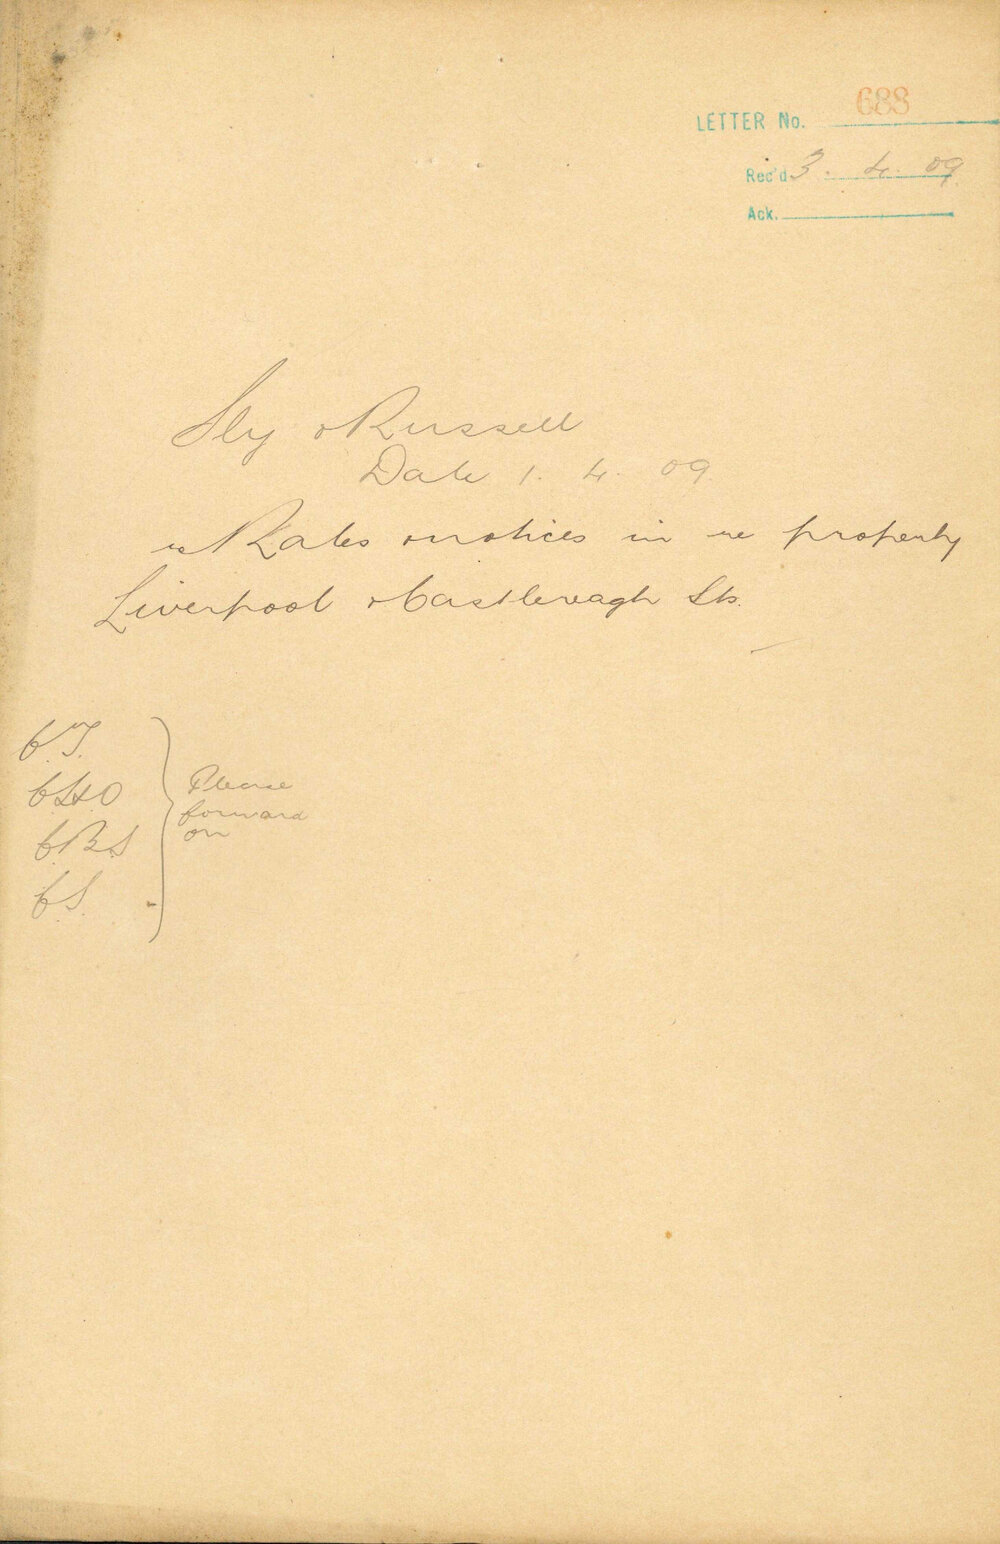 LETTER No. 688
Rec'd 3. 4. 09.
Ack.
Sly & Russell
Date 1. 4. 09.
re Rates & notices in re property
Liverpool & Castlereagh Sts.
C.T.
C.H.O
C.B.S
C.S.
Please
forward
on